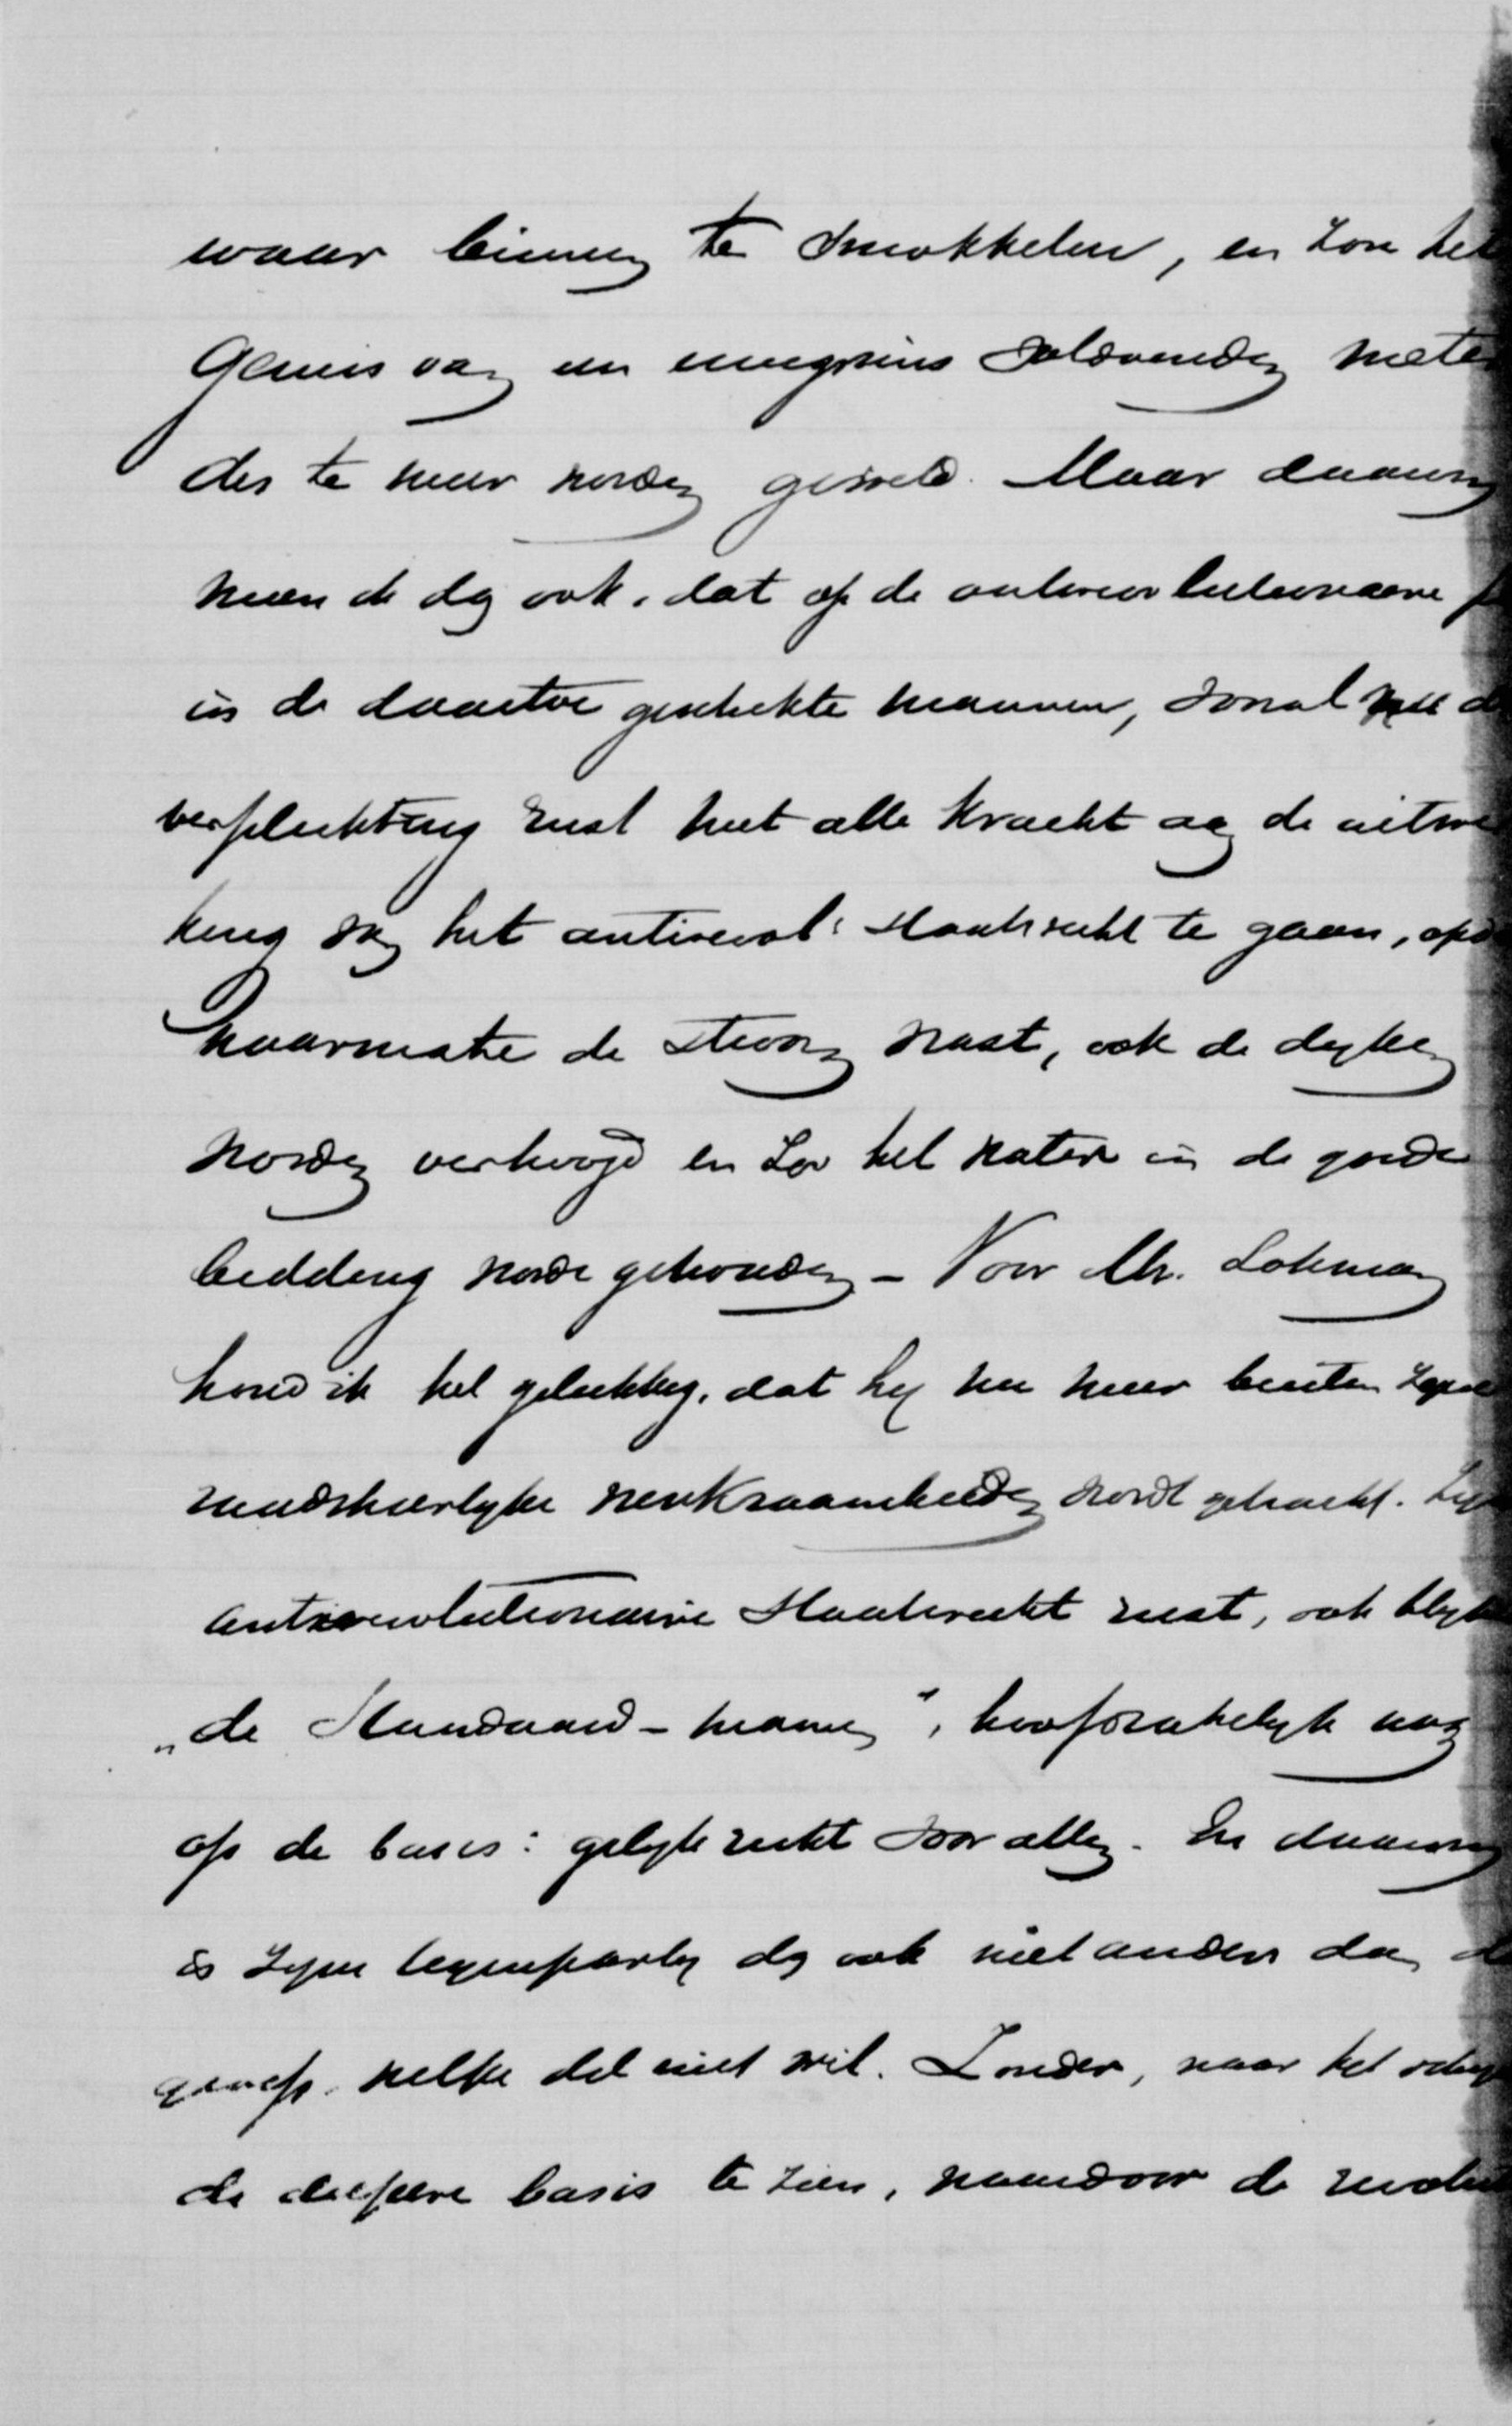 waar binnen te smokkelen, en zou het
gemis van een eenigszins voldoenden
des te meer worden gevoeld. Maar daarom
meen ik dan ook, dat op de antirevolutionaire
in de daartoe geschikte mannen, vooral nu de
verplichting rust met alle kracht aan de uitwer
king van het antirevol. Staatsrecht te gaan, opd
naarmate de stroom wast, ook de dijken
worden verhoogd en zoo het water in de goede
bedding worde gehouden – Voor Mr. Lohman
houd ik het gelukkig, dat hij nu meer buiten zijne
werkzaamheden wordt gebracht.
antirevolutionaire Staatsrecht rust, ook
„de Standaard-mannen", hoofdzakelijk nog
op de basis: gelijk recht voor allen. En daarom
is zijne tegenpartij dan ook niet anders dan de
groep, welke dat niet wil. Zonder, naar het
de diepere basis te zien, waardoor de